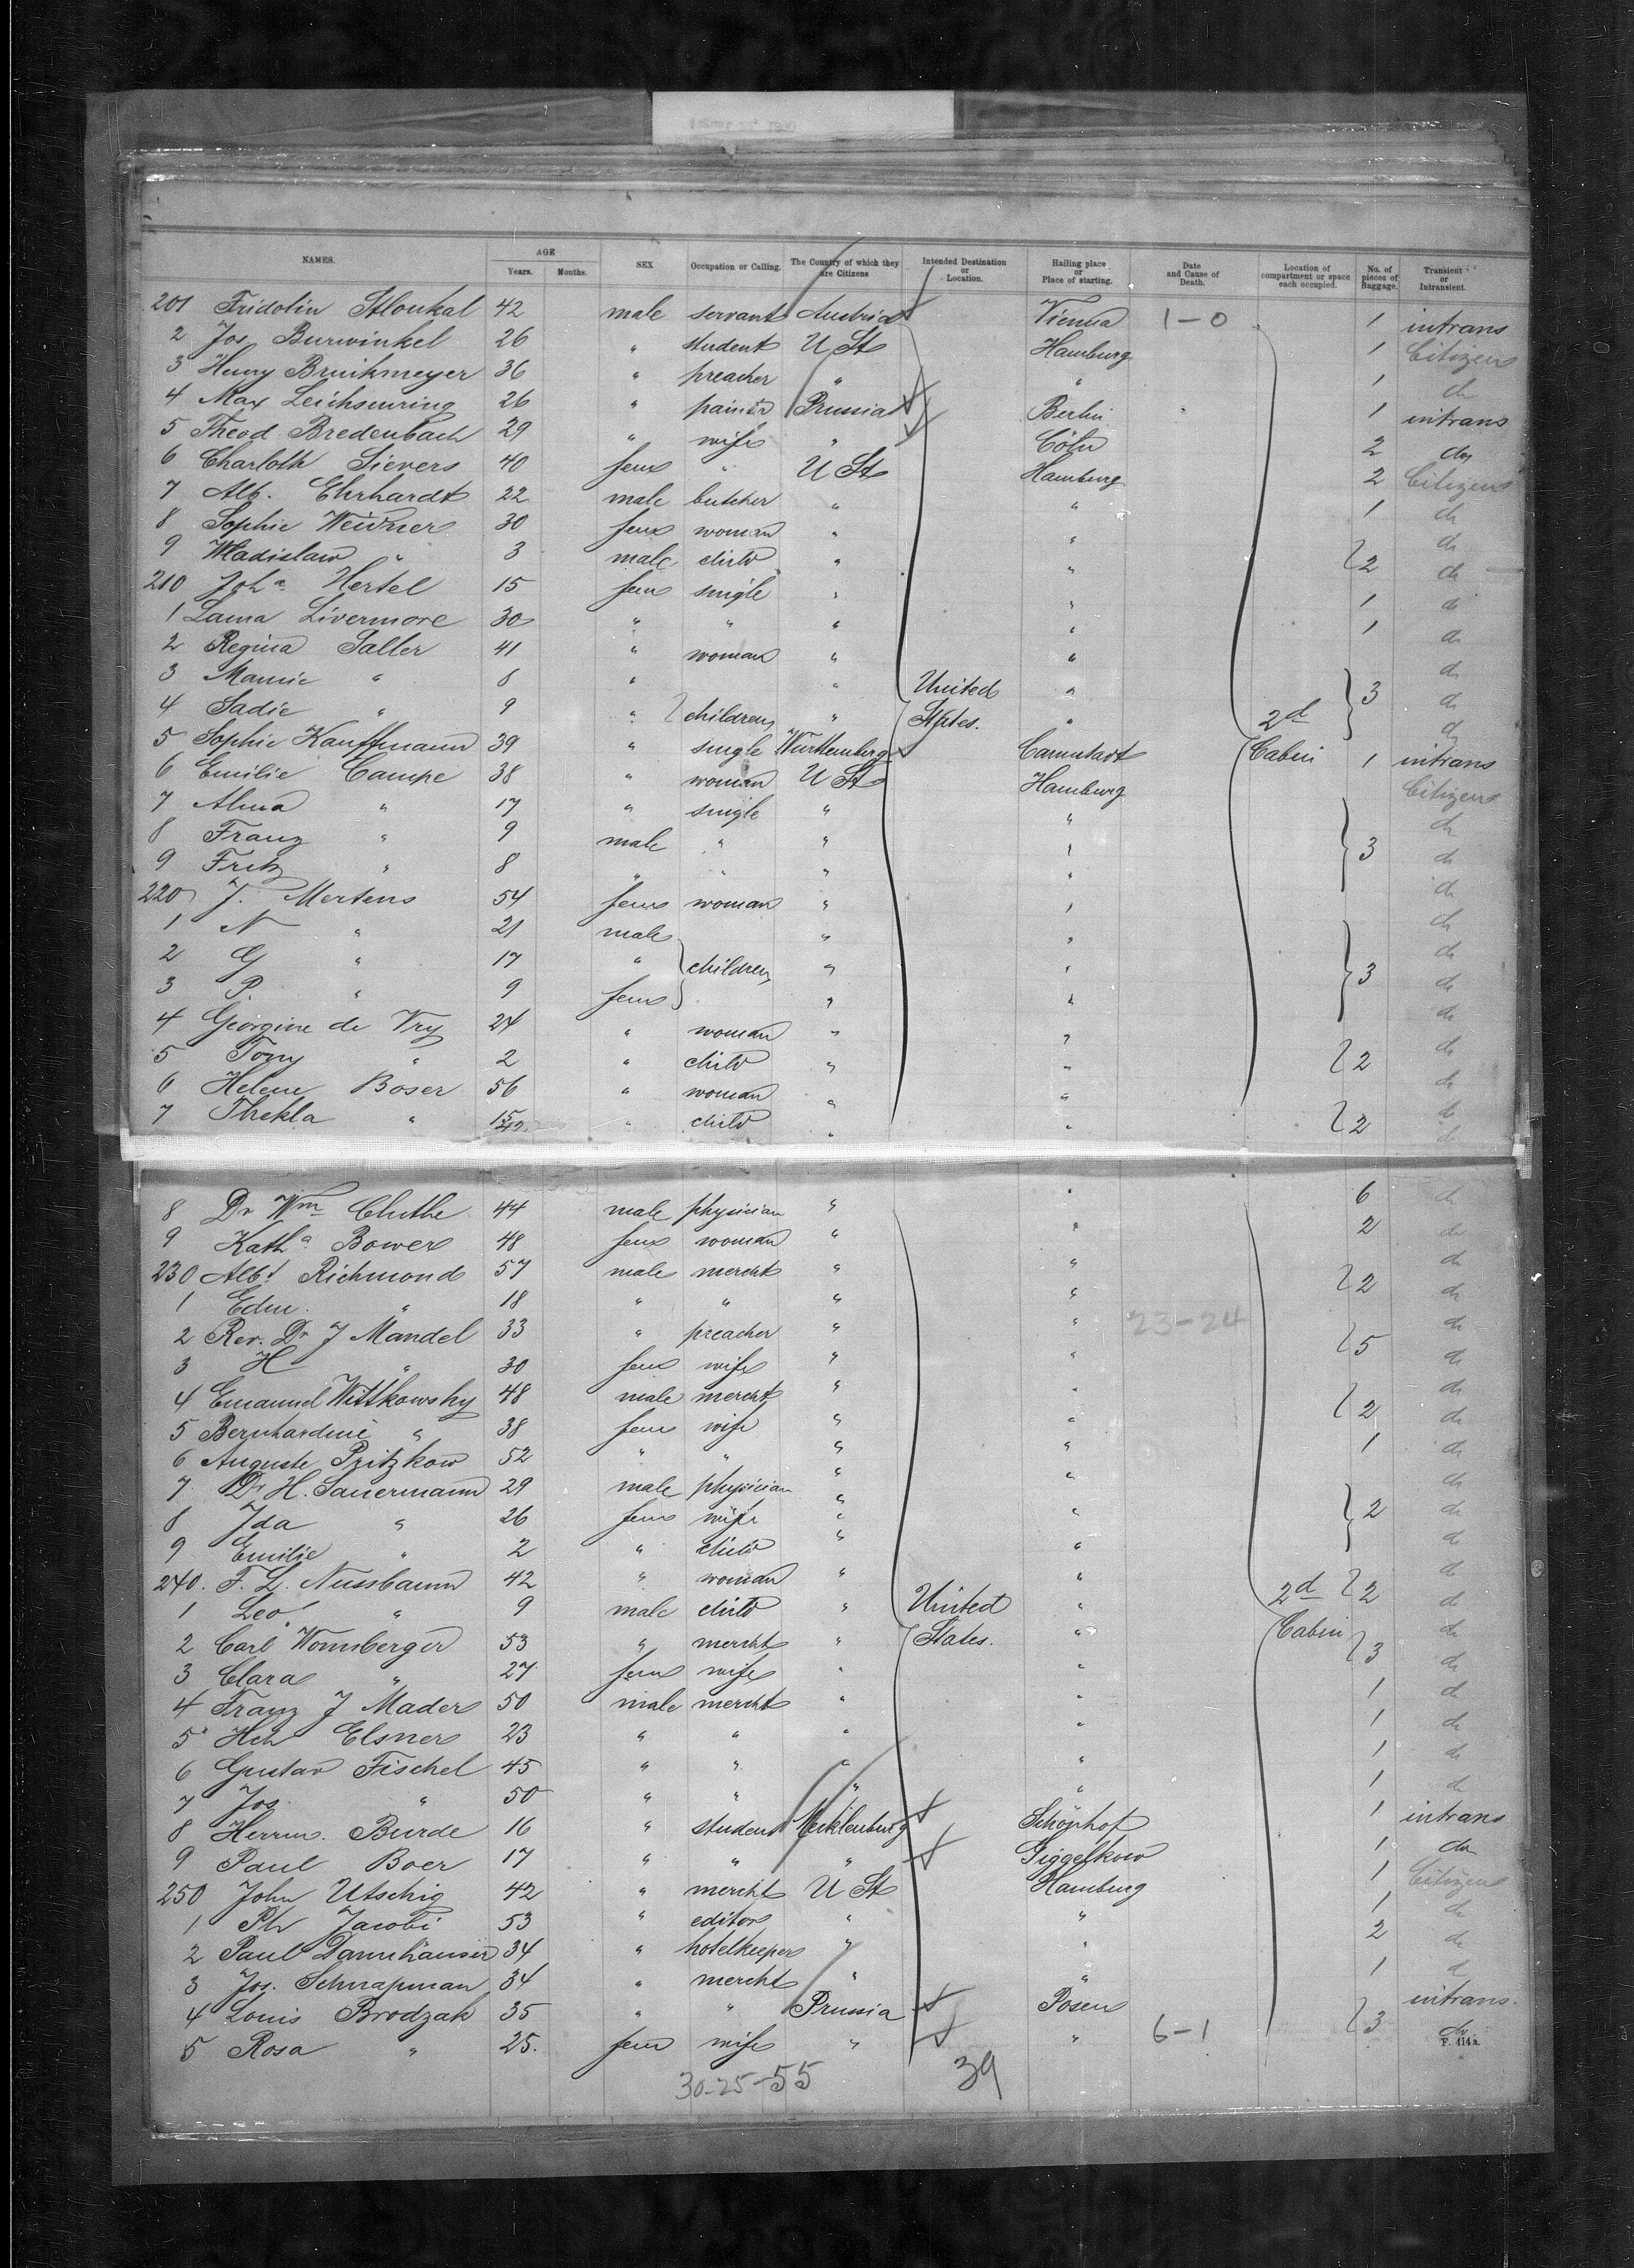 NAMES. AGE Years. Months. SEX Occupation or Calling. The Country of which they are Citizens Intended Destination or Location. Hailing place or Place of starting. Date and Cause of Death. Location of compartment or space each occupied. No. of pieces of Baggage. Transient or Intransient.
201 Fridolin Stloukal 42 male servant Austria Vienna 1-0 1 intrans
2 Jos Burwinkel 26 " student U St Hamburg 1 Citizen
3 Henry Bruihmeyer 36 " preacher " " 1 do
4 Max Leichsenring 26 " painter Prussia Berlin 1 intrans
5 Theod Bredenbach 29 " wife " Cöln 2 do
6 Charloth Sievers 40 fem " U St Hamburg 2 Citizen
7 Alb. Ehrhardt 22 male butcher " " 1 do
8 Sophie Weidner 30 fem woman " " do
9 Wladislaw " 3 male child " " 2 do
210 Joha Hertel 15 fem single " " 1 do
1 Laura Livermore 30 " " " " 1 do
2 Regina Saller 41 " woman " " do
3 Mamie " 6 " " United " 3 do
4 Sadie " 9 " children " States. " 2d do
5 Sophie Kauffmann 39 " single Württemberg Cannstadt Cabin 1 intrans
6 Emilie Campe 38 " woman U St Hamburg Citizen
7 Alma " 17 " single " " do
8 Franz " 9 male " " " 3 do
9 Fritz " 8 " " " " do
220 J. Mertens 54 fem woman " " do
1 N " 21 male " " do
2 G " 17 " children " " 3 do
3 P. " 9 fem " " do
4 Georgine de Vry 24 " woman " " do
5 Tony " 2 " child " " 2 do
6 Helene Boser 56 " woman " " do
7 Thekla " 15 " child " " 2 do
8 Dr Wm Cluthe 44 male physician " " 6 do
9 Katha Bower 48 fem woman " " 2 do
230 Albt Richmond 57 male mercht " " do
1 Edm. " 18 " " " " 2 do
2 Rev. Dr J Mandel 33 " preacher " " 23-24 do
3 H " 30 fem wife " " 5 do
4 Emanuel Wittkowsky 48 male mercht " " do
5 Bernhardine " 38 fem wife " " 2 do
6 Auguste Pritzkow 52 " " " " 1 do
7 Dr H. Sauermann 29 male physician " " do
8 Ida " 26 fem wife " " 2 do
9 Emilie " 2 " child " " do
240. F. L. Nussbaum 42 " woman " " 2d 2 do
1 Leo " 9 male child " United " do
2 Carl Wonnberger 53 " mercht " States. " Cabin do
3 Clara " 27 fem wife " " 3 do
4 Franz J Mader 50 male mercht " " 1 do
5 Hch Elsner 23 " " " " 1 do
6 Gustav Fischel 45 " " " " 1 do
7 Jos. " 50 " " " " 1 do
8 Herm. Burde 16 " student Mecklenburg Schönhof 1 intrans
9 Paul Boer 17 " " " Siggelkow 1 do
250 John Utschig 42 " mercht U St Hamburg 1 Citizen
1 Ph Jacobi 53 " editor " " 1 do
2 Paul Dannhäuser 34 " hotelkeeper " " 2 do
3 Jos. Schnapman 34 " mercht " " 1 do
4 Louis Brodzak 35 " " Prussia Posen intrans.
5 Rosa " 25. fem wife " " 6-1 3 do
F. 414 a.
30-25-55 39